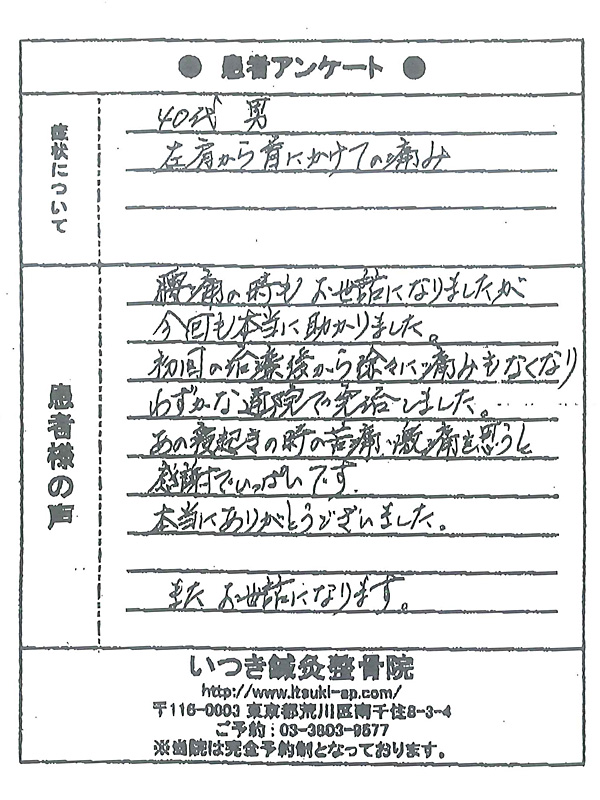 ● 患者アンケート ●
症状について
40代 男
左肩から首にかけての痛み
患者様の声
腰痛の時も お世話になりましたが
今回も本当に助かりました。
初回の治療後から徐々に痛みもなくなり
わずかな通院で完治しました。
あの寝起きの時の苦痛、激痛を思うと
感謝でいっぱいです.
本当にありがとうございました。
また お世話になります。
いつき鍼灸整骨院
http://www.itsuki-ap.com/
〒116-0003 東京都荒川区南千住8-3-4
ご予約：03-3803-9577
※当院は完全予約制となっております。